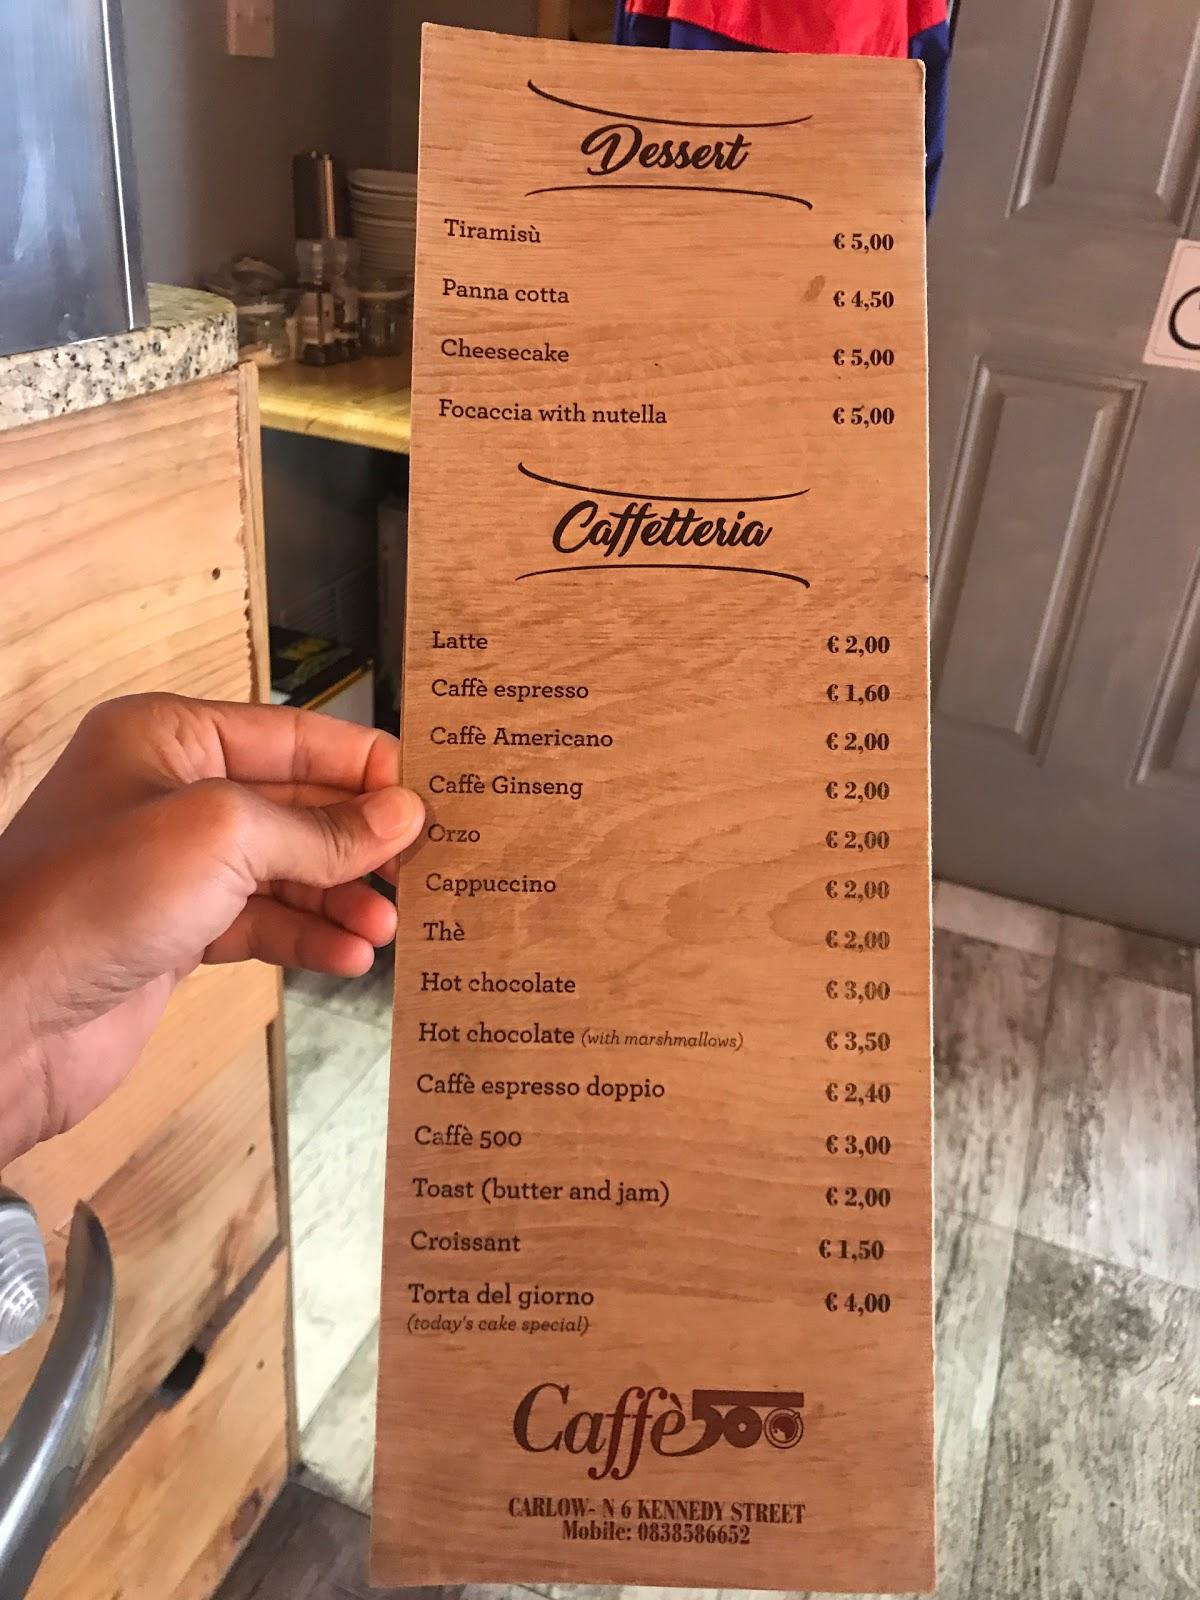 Dessert
Tiramisù € 5,00
Panna cotta € 4,50
Cheesecake € 5,00
Focaccia with nutella € 5,00
Caffetteria
Latte € 2,00
Caffè espresso € 1,60
Caffè Americano € 2,00
Caffè Ginseng € 2,00
Orzo € 2,00
Cappuccino € 2,00
Thè € 2,00
Hot chocolate € 3,00
Hot chocolate (with marshmallows) € 3,50
Caffè espresso doppio € 2,40
Caffè 500 € 3,00
Toast (butter and jam) € 2,00
Croissant € 1,50
Torta del giorno € 4,00
(today's cake special)
Caffè500
CARLOW- N 6 KENNEDY STREET
Mobile: 0838586652